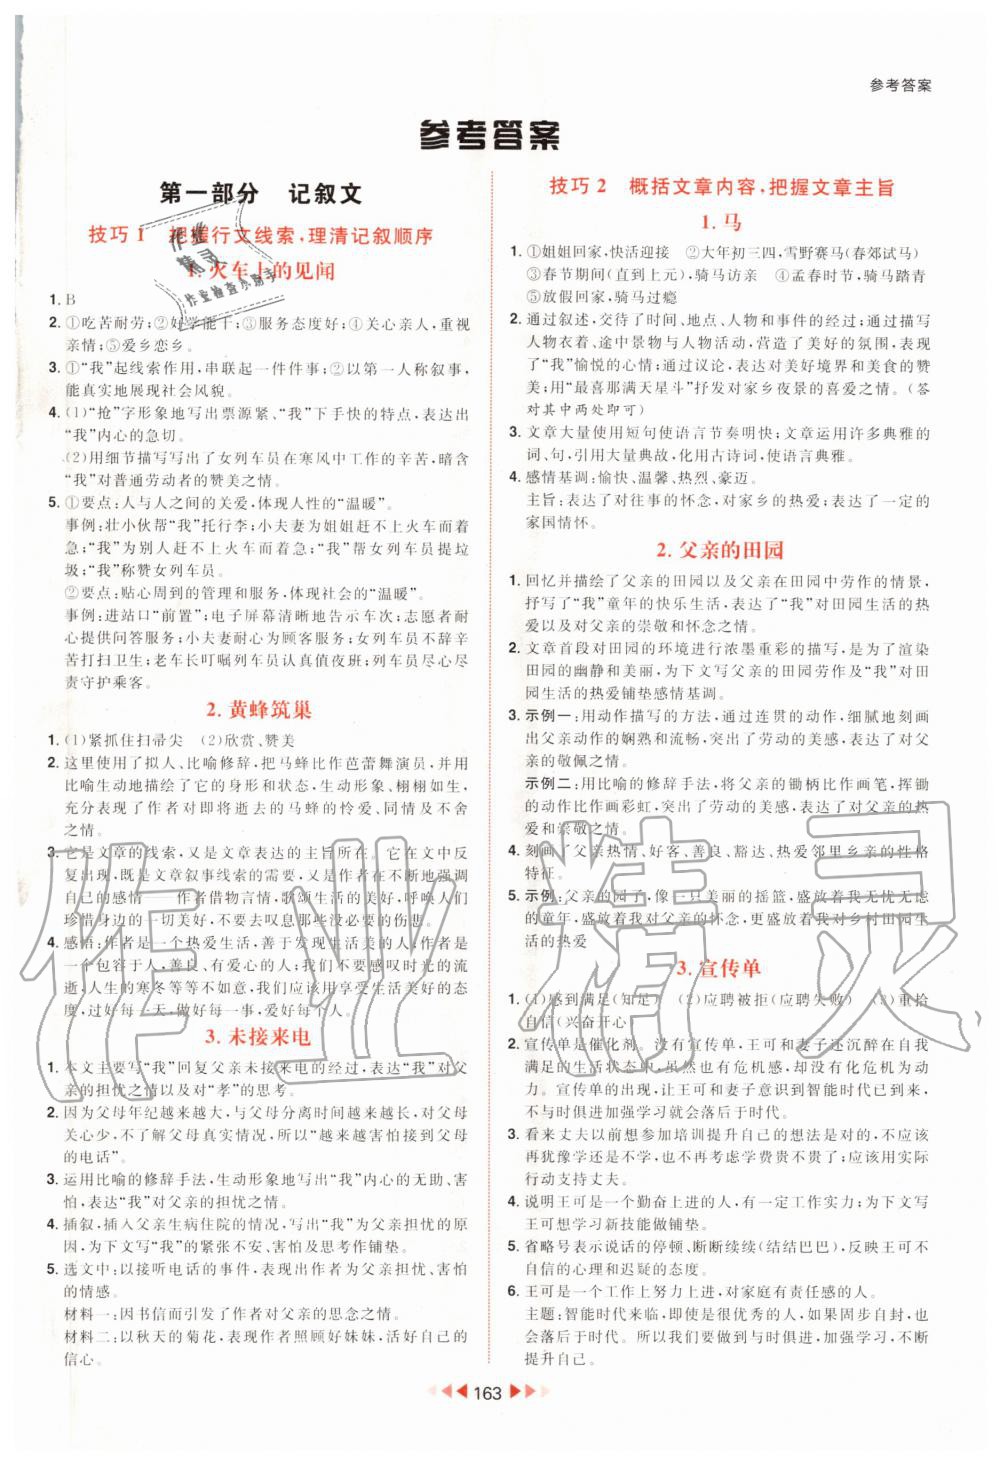 参考答案
参考答案
第一部分 记叙文
技巧1 把握行文线索,理清记叙顺序
1. 火车上的见闻
1. B
2. ①吃苦耐劳;②好学能干;③服务态度好;④关心亲人,重视
亲情;⑤爱乡恋乡。
3. ①“我”起线索作用,串联起一件件事;②以第一人称叙事,
能真实地展现社会风貌。
4. (1)“抢”字形象地写出票源紧、“我”下手快的特点,表达出
“我”内心的急切。
(2)用细节描写写出了女列车员在寒风中工作的辛苦,暗含
“我”对普通劳动者的赞美之情。
5. ①要点:人与人之间的关爱,体现人性的“温暖”。
事例:壮小伙帮“我”托行李;小夫妻为姐姐赶不上火车而着
急;“我”为别人赶不上火车而着急;“我”帮女列车员提垃
圾;“我”称赞女列车员。
②要点:贴心周到的管理和服务,体现社会的“温暖”。
事例:进站口“前置”;电子屏幕清晰地告示车次;志愿者耐
心提供问答服务;小夫妻耐心为顾客服务;女列车员不辞辛
苦打扫卫生;老车长叮嘱列车员认真值夜班;列车员尽心尽
责守护乘客。
2. 黄蜂筑巢
1. (1)紧抓住扫帚尖 (2)欣赏、赞美
2. 这里使用了拟人、比喻修辞,把马蜂比作芭蕾舞演员,并用
比喻生动地描绘了它的身形和状态,生动形象、栩栩如生,
充分表现了作者对即将逝去的马蜂的怜爱、同情及不舍
之情。
3. 它是文章的线索,又是文章表达的主旨所在。它在文中反
复出现,既是文章叙事线索的需要,又是作者在不断地强调
自己的感情 作者借物言情,歌颂生活的美好,呼唤人们
珍惜身边的一切美好,不要去叹息那些没必要的伤悲。
4. 感悟:作者是一个热爱生活,善于发现生活美的人,作者是
一个包容万人,善良、有爱心的人,我们不要感叹时光的流
逝,人生的寒冬等等不如意,我们应该用享受生活美好的态
度,过好每一天、做好每一事,爱好每个人。
3. 未接来电
1. 本文主要写“我”回复父亲未接来电的经过,表达“我”对父
亲的担忧之情以及对“孝”的思考。
2. 因为父母年纪越来越大,与父母分离时间越来越长,对父母
关心少,不了解父母真实情况,所以“越来越害怕接到父母
的电话”。
3. 运用比喻的修辞手法,生动形象地写出“我”联系不上父亲
时,表达“我”对父亲的担忧之情。
4. 插叙,插入父亲生病住院的情况,写出“我”对父亲担忧的原
因,为下文写“我”的紧张不安、害怕及思考作铺垫。
5. 选文中:以接听电话的事件,表现出作者为父亲担忧、害怕
的情感。
材料一:因书信而引发了作者对父亲的思念之情。
材料二:以秋天的菊花,表现出作者照顾好妹妹,活好自己的
信心。
技巧2 概括文章内容,把握文章主旨
1. 马
1. ①姐姐回家,快活迎接 ②大年初三四,雪野赛马(春郊试马)
③春节期间(直到上元),骑马访亲 ④孟春时节,骑马踏青
⑤放假回家,骑马过瘾
2. 通过叙述,交待了时间、地点、人物和事件的经过;通过描写
人物衣着、途中景物与人物活动,营造了美好的氛围,表现
了“我”愉悦的心情;通过议论,表达对美好境界和美食的赞
美;用“最喜那满天星斗”抒发对家乡夜景的喜爱之情。(答
对其中两处即可)
3. 文章大量使用短句使语言节奏明快;文章运用许多典雅的
词、句,引用大量典故,化用古诗词,使语言典雅。
4. 感情基调:愉快、温馨、热烈、豪迈。
主旨:表达了对往事的怀念,对家乡的热爱;表达了一定的
家国情怀。
2. 父亲的田园
1. 回忆并描绘了父亲的田园以及父亲在田园中劳作的情景,
抒写了“我”童年的快乐生活,表达了“我”对田园生活的热
爱以及对父亲的崇敬和怀念之情。
2. 文章首段对田园的环境进行浓墨重彩的描写,是为了渲染
田园的幽静和美丽,为下文写父亲的田园劳作及“我”对田
园生活的热爱铺垫感情基调。
3. 示例一:用动作描写的方法,通过连贯的动作,细腻地刻画
出父亲动作的娴熟和流畅,突出了劳动的美感,表达了对父
亲的敬佩之情。
示例二:用比喻的修辞手法,将父亲的锄柄比作画笔,挥锄
的动作比作画彩虹,突出了劳动的美感,表达了对父亲的热
爱和崇敬之情。
4. 刻画了父亲热情、好客、善良、豁达、热爱邻里乡亲的性格
特征。
5. 示例:父亲的园子,像一只美丽的摇篮,盛放着我无忧无虑
的童年,盛放着我对父亲的怀念,更盛放着我对乡村田园生
活的热爱
3. 宣传单
1. (1)感到满足(知足) (2)应聘被拒(应聘失败) (3)重拾
自信(兴奋开心)
2. 宣传单是催化剂。没有宣传单,王可和妻子还沉醉在自我
满足的生活状态中,虽然有危机感,却没有化危机为动
力。宣传单的出现,让王可和妻子意识到智能时代已到来,
不与时俱进加强学习就会落后于时代。
3. 看来丈夫以前想参加培训提升自己的想法是对的,不应该
再犹豫学还是不学,也不再考虑学费贵不贵;应该用实际
行动支持丈夫。
4. 说明王可是一个勤奋上进的人,有一定工作实力;为下文写
王可想学习新技能做铺垫。
5. 省略号表示说话的停顿、断断续续(结结巴巴),反映王可不
自信的心理和迟疑的态度。
6. 王可是一个工作上努力上进,对家庭有责任感的人。
主题:智能时代来临,即使是很优秀的人,如果固步自封,也
会落后于时代。所以我们要与时俱进,加强学习,不断
提升自己。
163
作业精灵
作业
精灵
作业检查小助手